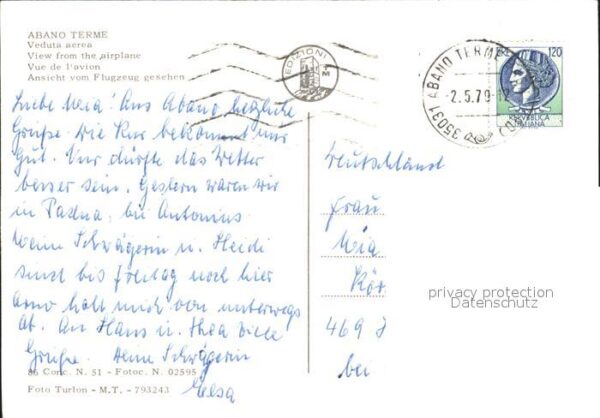 ABANO TERME
Veduta aerea
View from the airplane
Vue de l'avion
Ansicht vom Flugzeug gesehen
EDIZIONI
M
35031 ABANO TERME
-2.5.79-
120
REPUBBLICA
ITALIANA
Liebe Mia! Aus Abano herzliche
Grüße. Die Kur bekommt mir
gut. Nur dürfte das Wetter
besser sein. Gestern waren wir
in Padua, bei Antonius
Meine Schwägerin u. Heidi
sind bis Freitag noch hier
Arno holt mich von unterwegs
ab. An Hans u. Thea viele
Grüße. Deine Schwägerin
Elsa
Deutschland
Frau
Mia
Kör
469
bei
privacy protection
Datenschutz
86 Conc. N. 51 - Fotoc. N. 02595
Foto Turlon - M.T. - 793243